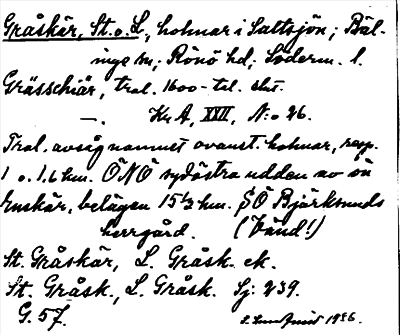 Gråskär, St. o. L., holmar i Saltsjön; Bäl-
inge sn; Rönö hd; Söderm. l.
Grässchiär, tral. 1600-tal. slut.
—. Kr A, XXII, N:o 26.
Tral. avser namnet ovanst. holmar, resp.
1 o. 1,6 km. ÖNÖ sydöstra udden av ön
Enskär, belägen 15 1/3 km. SÖ Bjärksunds
herrgård. (Vänd!)
St. Gråskär, L. Gråsk. ek.
St. Gråsk., L. Gråsk. Sj: 239.
G. 57. 1936.